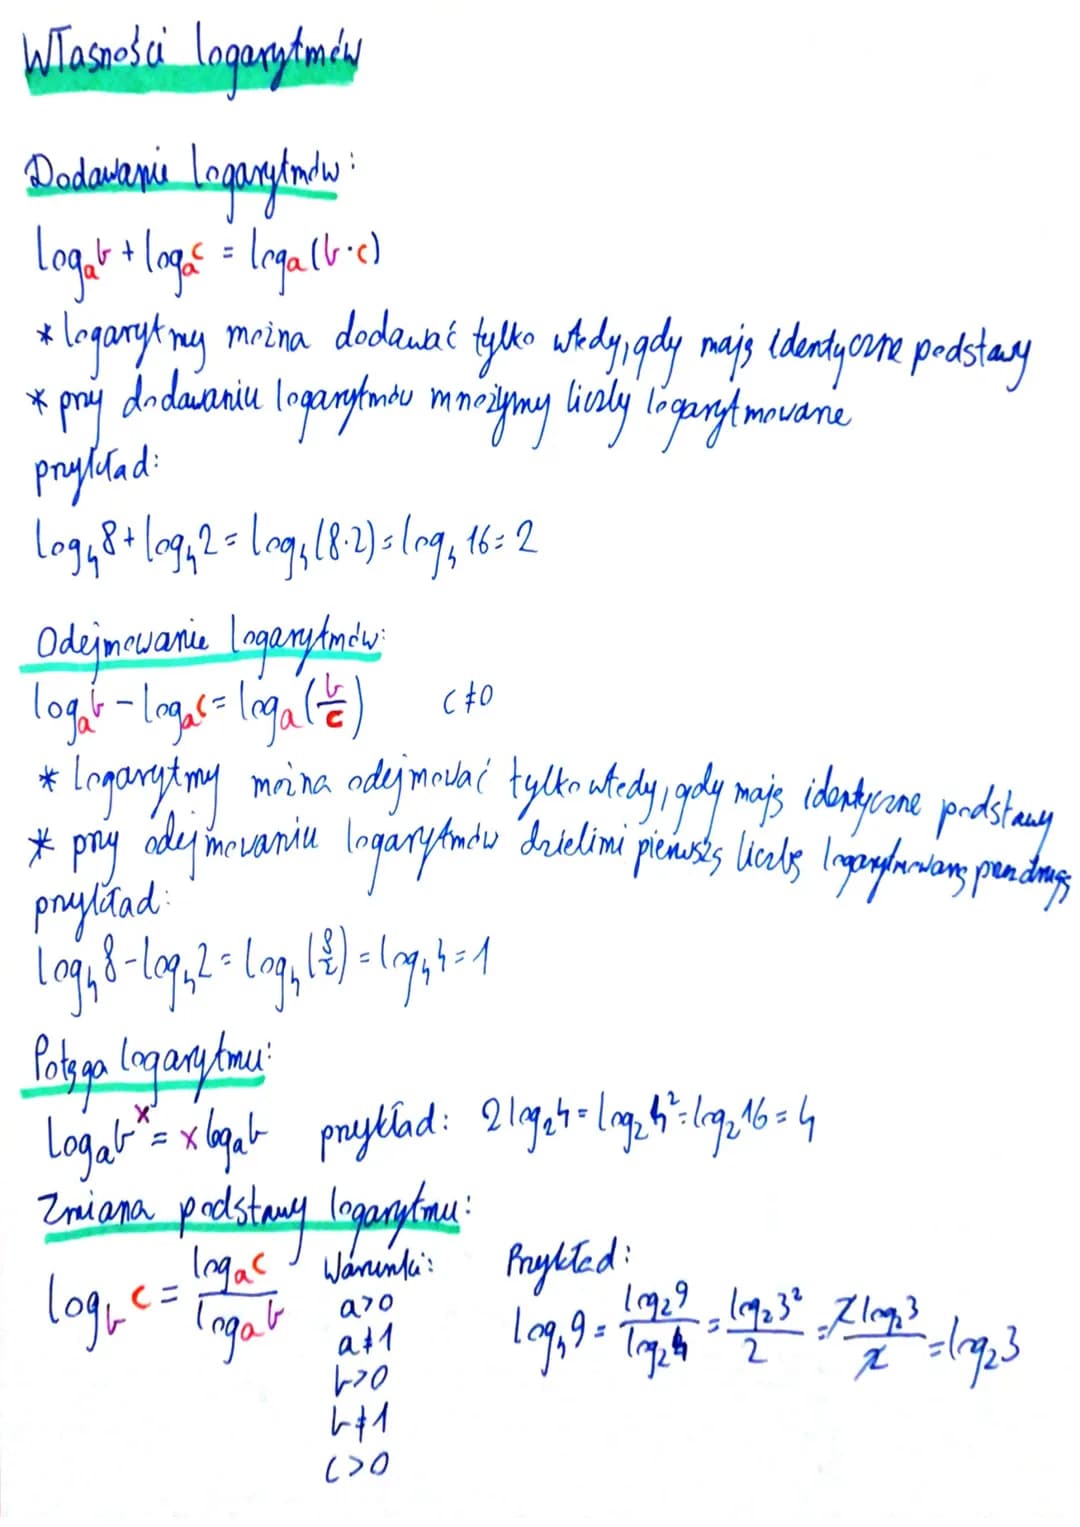 Własności logarytmów
Dodawanie logarytmów:
log_a b + log_a c = log_a (b·c)
* logarytmy można dodawać tylko wtedy, gdy mają identyczne podstawy
* przy dodawaniu logarytmów mnożymy liczby logarytmowane
przykład:
log_4 8 + log_4 2 = log_4 (8·2) = log_4 16 = 2
Odejmowanie logarytmów:
log_a b - log_a c = log_a (b/c) c ≠ 0
* logarytmy można odejmować tylko wtedy, gdy mają identyczne podstawy
* przy odejmowaniu logarytmów dzielimi pierwszą liczbę logarytmowaną przez drugą
przykład:
log_4 8 - log_4 2 = log_4 (8/2) = log_4 4 = 1
Potęga logarytmu:
log_a b^x = x log_a b przykład: 2 log_2 4 = log_2 4^2 = log_2 16 = 4
Zmiana podstawy logarytmu:
log_b c = log_a c / log_a b
Warunki:
a>0
a≠1
b>0
b≠1
c>0
Przykład:
log_4 9 = log_2 9 / log_2 4 = log_2 3^2 / 2 = 2 log_2 3 / 2 = log_2 3